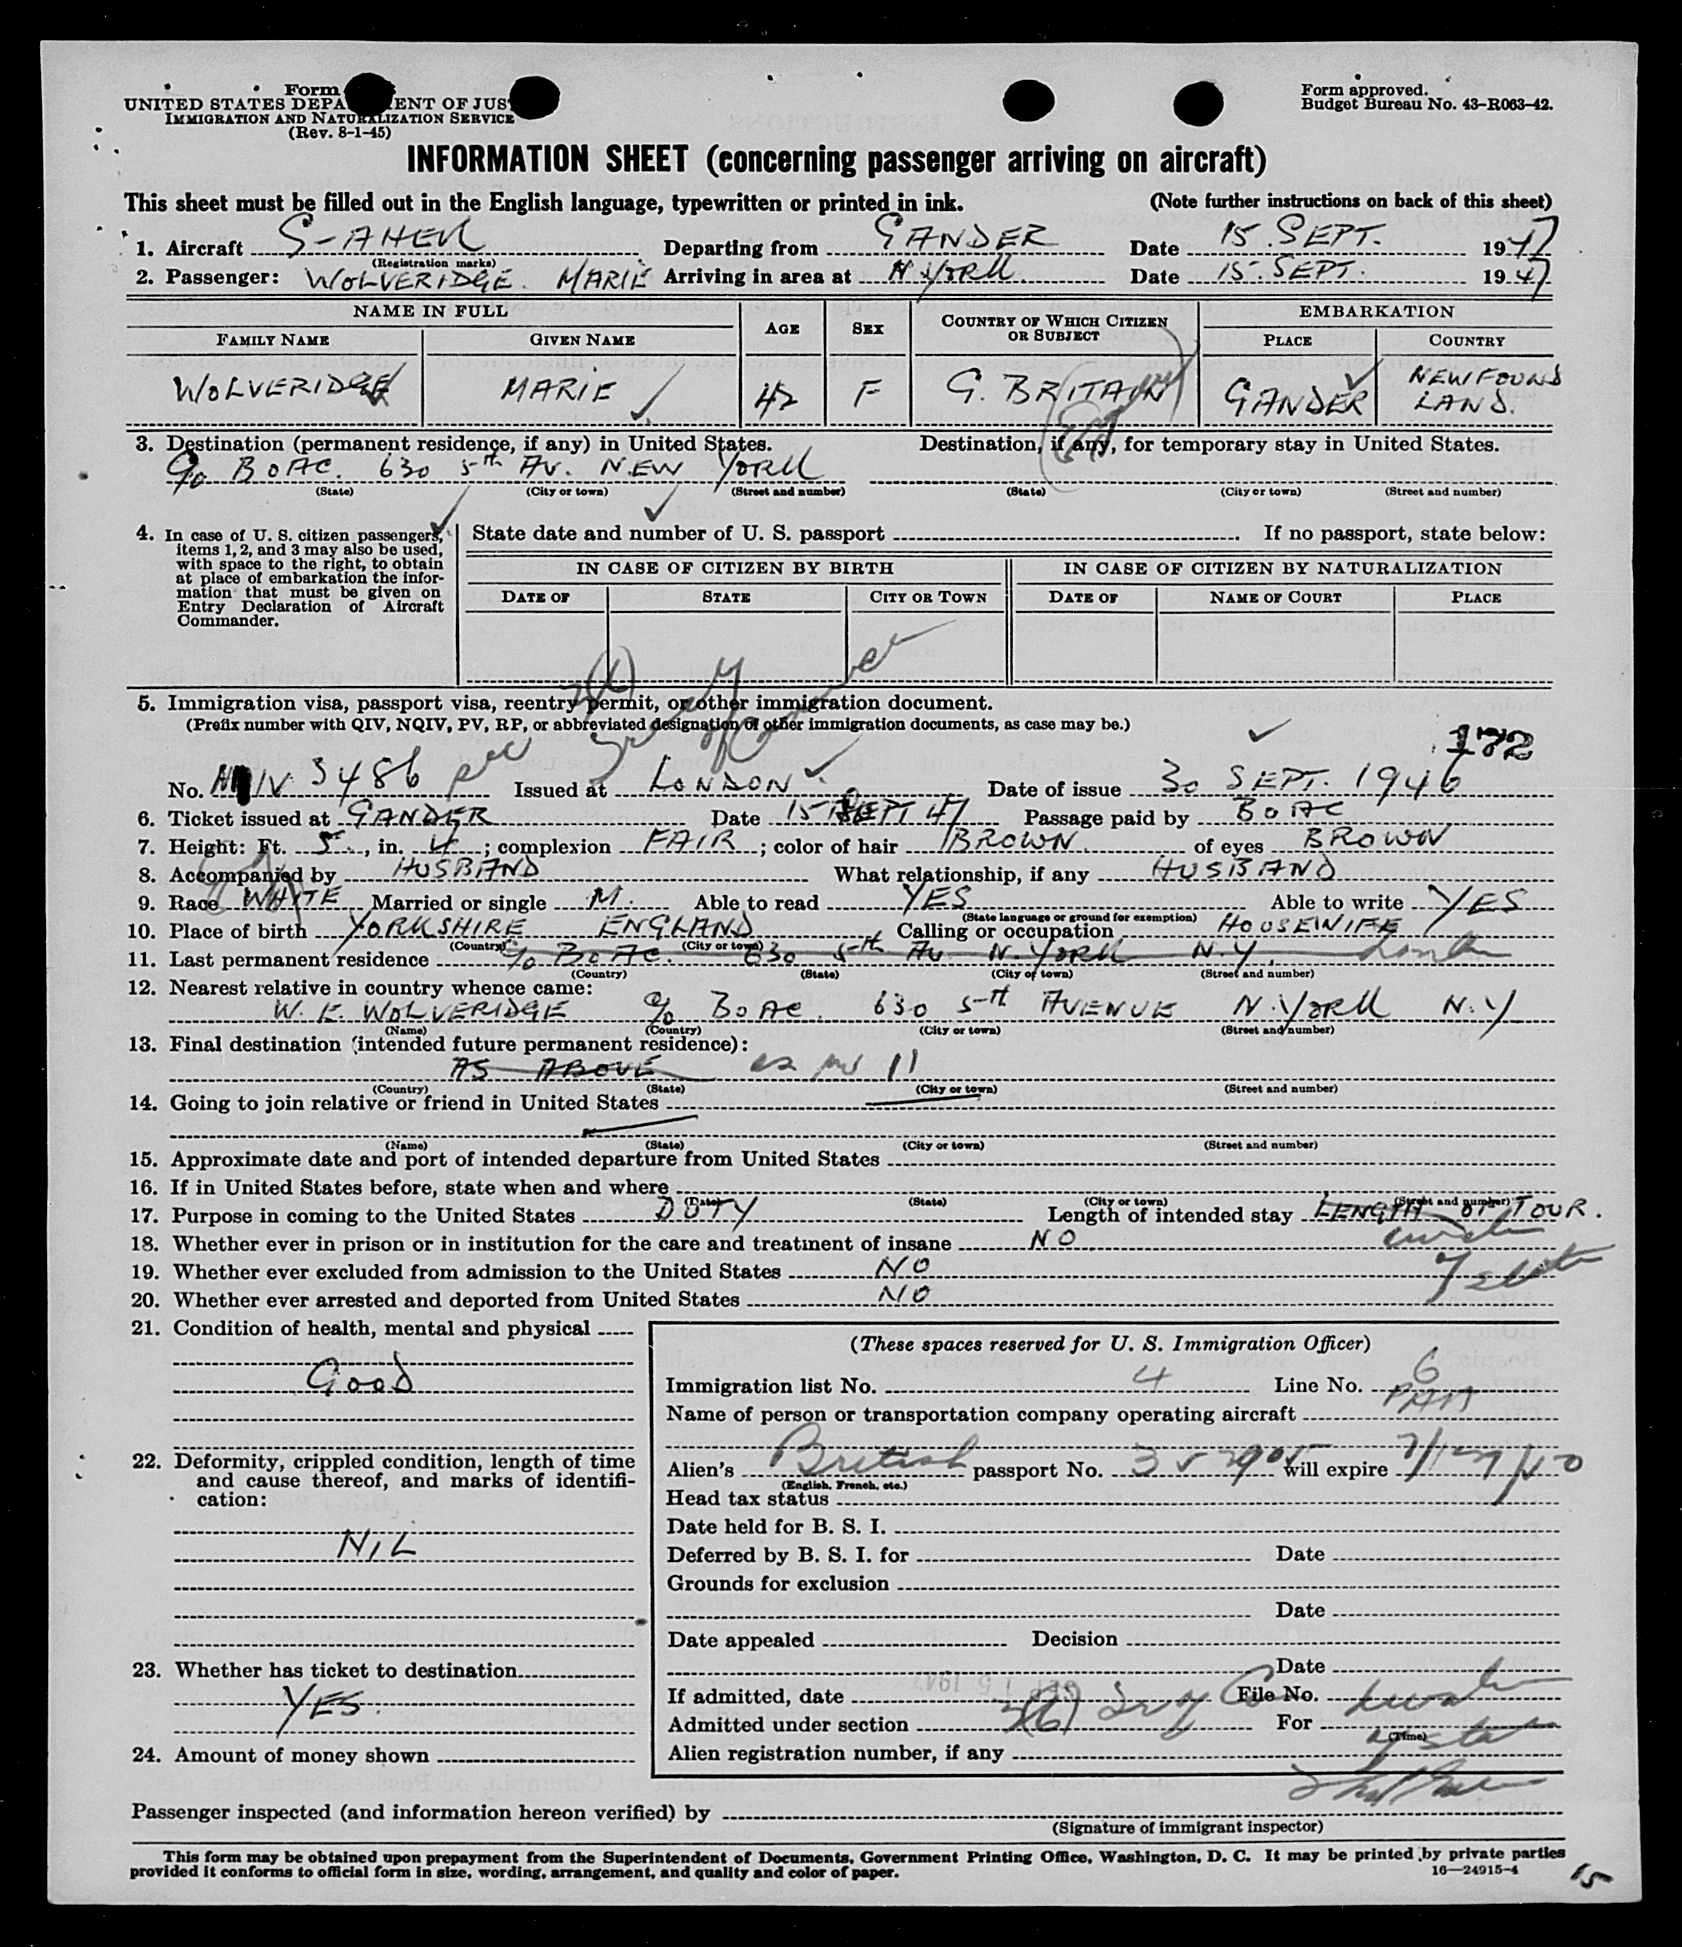 Form
UNITED STATES DEPA ENT OF JUS
IMMIGRATION AND NATURALIZATION SERVICE
(Rev. 8-1-45)
Form approved.
Budget Bureau No. 43-R063-42.
INFORMATION SHEET (concerning passenger arriving on aircraft)
This sheet must be filled out in the English language, typewritten or printed in ink. (Note further instructions on back of this sheet)
1. Aircraft G-AHEK Departing from GANDER Date 15. SEPT. 1947
(Registration marks)
2. Passenger: WOLVERIDGE. MARIE Arriving in area at N YORK Date 15. SEPT. 1947
NAME IN FULL AGE SEX COUNTRY OF WHICH CITIZEN OR SUBJECT EMBARKATION
FAMILY NAME GIVEN NAME PLACE COUNTRY
WOLVERIDGE MARIE 42 F G. BRITAIN GANDER NEWFOUND LAND.
3. Destination (permanent residence, if any) in United States. Destination, if any, for temporary stay in United States.
c/o BOAC. 630 5th AV. NEW YORK
(State) (City or town) (Street and number) (State) (City or town) (Street and number)
4. In case of U. S. citizen passengers, items 1, 2, and 3 may also be used, with space to the right, to obtain at place of embarkation the information that must be given on Entry Declaration of Aircraft Commander.
State date and number of U. S. passport . If no passport, state below:
IN CASE OF CITIZEN BY BIRTH IN CASE OF CITIZEN BY NATURALIZATION
DATE OF STATE CITY OR TOWN DATE OF NAME OF COURT PLACE
5. Immigration visa, passport visa, reentry permit, or other immigration document.
(Prefix number with QIV, NQIV, PV, RP, or abbreviated designation of other immigration documents, as case may be.)
172
No. 3486 Issued at LONDON Date of issue 30 SEPT. 1946
6. Ticket issued at GANDER Date 15 SEPT 47 Passage paid by BOAC
7. Height: Ft. 5, in. 4; complexion FAIR; color of hair BROWN of eyes BROWN
8. Accompanied by HUSBAND What relationship, if any HUSBAND
9. Race WHITE Married or single M. Able to read YES Able to write YES
(State language or ground for exemption)
10. Place of birth YORKSHIRE ENGLAND Calling or occupation HOUSEWIFE
(Country) (City or town)
11. Last permanent residence c/o BOAC. 630 5th AV N. YORK N.Y. London
(Country) (State) (City or town) (Street and number)
12. Nearest relative in country whence came:
W. E. WOLVERIDGE c/o BOAC. 630 5th AVENUE N. YORK N.Y
(Name) (Country) (City or town) (Street and number)
13. Final destination (intended future permanent residence):
AS ABOVE as per 11
(Country) (State) (City or town) (Street and number)
14. Going to join relative or friend in United States
(Name) (State) (City or town) (Street and number)
15. Approximate date and port of intended departure from United States
16. If in United States before, state when and where
(Date) (State) (City or town) (Street and number)
17. Purpose in coming to the United States DUTY Length of intended stay LENGTH OF TOUR.
18. Whether ever in prison or in institution for the care and treatment of insane NO
19. Whether ever excluded from admission to the United States NO
20. Whether ever arrested and deported from United States NO
21. Condition of health, mental and physical
GOOD
22. Deformity, crippled condition, length of time and cause thereof, and marks of identification:
NIL
23. Whether has ticket to destination
YES.
24. Amount of money shown
(These spaces reserved for U. S. Immigration Officer)
Immigration list No. 4 Line No. 6
Name of person or transportation company operating aircraft
Alien's British passport No. will expire
(English, French, etc.)
Head tax status
Date held for B. S. I.
Deferred by B. S. I. for Date
Grounds for exclusion
Date
Date appealed Decision
Date
If admitted, date File No.
Admitted under section 3(6) For
(Time)
Alien registration number, if any
Passenger inspected (and information hereon verified) by
(Signature of immigrant inspector)
This form may be obtained upon prepayment from the Superintendent of Documents, Government Printing Office, Washington, D. C. It may be printed by private parties
provided it conforms to official form in size, wording, arrangement, and quality and color of paper. 16—24915-4
15